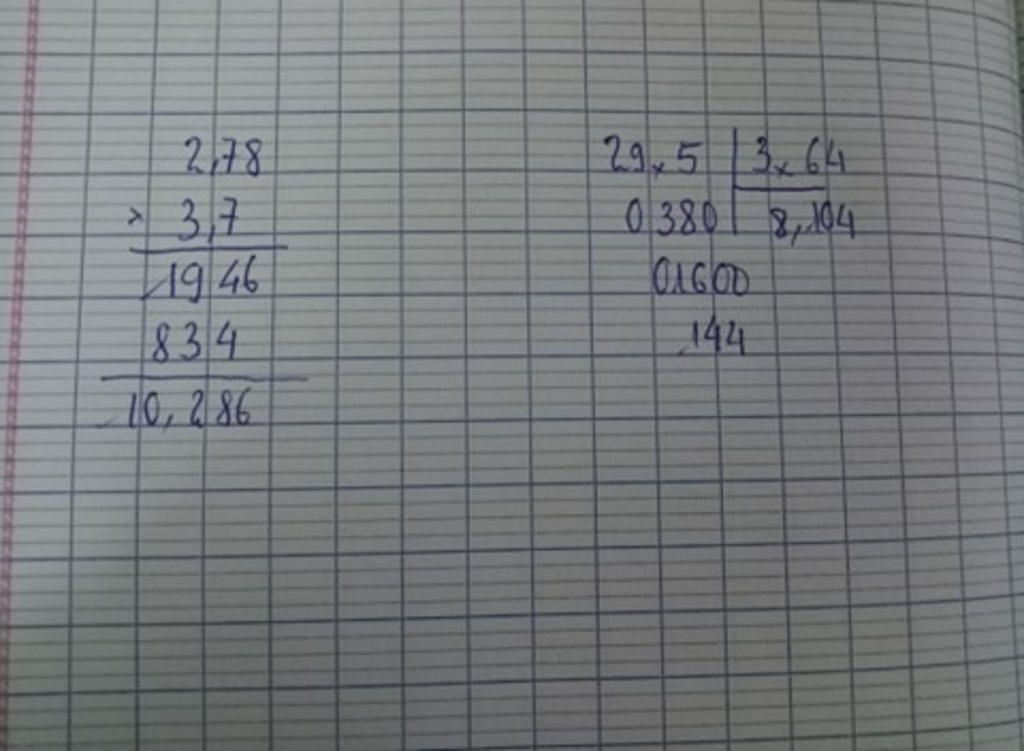 2,78
× 3,7
1946
834
10,286
29×5 | 3×64
0380 | 8,104
01600
144